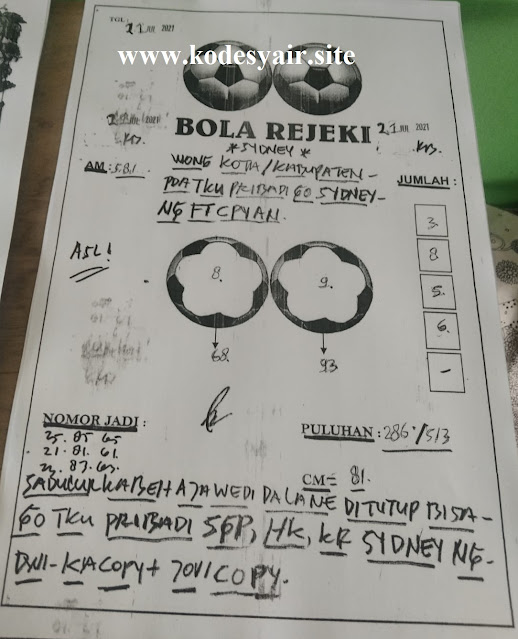 TGL: 21 JUL 2021
www.kodesyair.site
21 JUL 2021
21 JUL 2021
BOLA REJEKI
* SYDNEY *
AM: 581
WONG KOTA/KABUPATEN-
PDA TKU PRIBADI GO SYDNEY-
NG FTCPYAN.
JUMLAH:
3
8
5.
6.
-
ASL!
8.
9.
68.
93
NOMOR JADI:
25. 85. 65
21. 81. 61.
PULUHAN: 286·/513
CM= 81.
KABEH AJA WEDI DALANE DITUTUP BISA-
GO TKU PRIBADI SGP, HK, KR SYDNEY NG-
DWI-KIA COPY+ JOVI COPY.